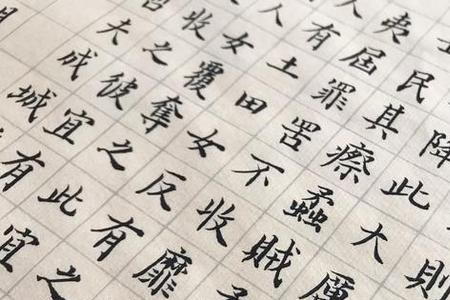 則
降此大厲
士民其瘵蟊賊
夷屆罪罟不收靡
人有土田女反有之
人女覆奪之此宜
收之彼宜有
夫成城